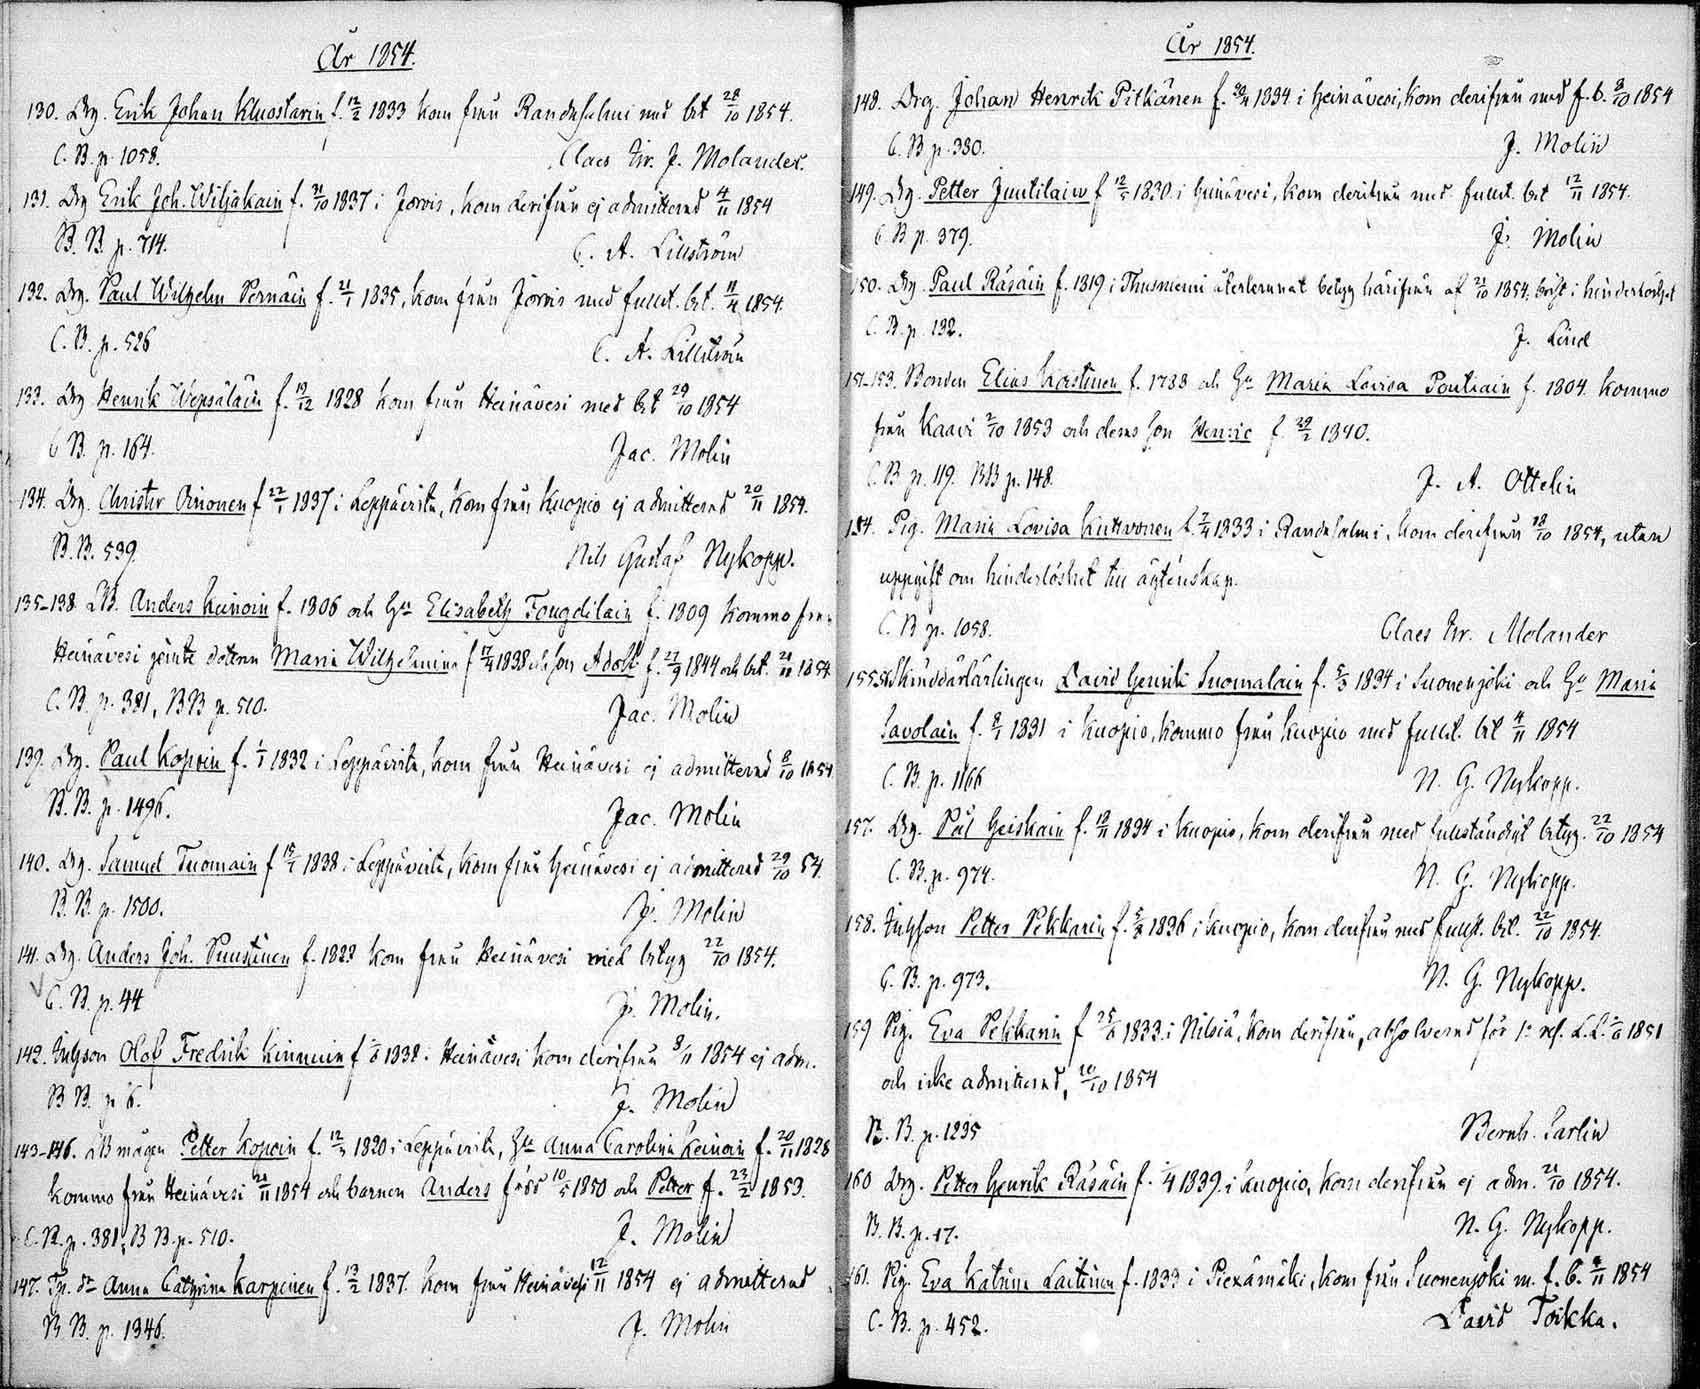 År 1854.
130. Drg. Erik Johan Kluostarin f. 12/2 1833 kom från Randasalmi med bet 28/10 1854.
C. B. p. 1058. Claes Hr. J. Molander.
131. Drg Erik Joh. Wiljakain f. 21/10 1837 i Jorvis, kom derifrån ej admitterad 4/11 1854
B. B. p. 714. C. A. Lillström
132. Drg. Paul Wilhelm Pernäin f. 21/1 1835, kom från Jorvis med fullst. bet. 1854.
C. B. p. 526 C. A. Lillström
133. Drg Henrik Wepsäläin f. 19/12 1828 kom från Heinävesi med bet 29/10 1854
C B. p. 164. Jac. Molin
134. Drg. Christer Oinonen f 22/1 1837 i Leppävirta, kom från Kuopio ej admitterad 20/11 1854.
B. B. 539. Nils Gustaf Nykopp.
135-138. Anders Keinoin f. 1806 och Hu Elisabeth Fougdilain f. 1809 kommo från
Heinävesi jemte dottern Maria Wilhelmina f 17/4 1838 och son Adolf f. 27/9 1844 och bet. 1854
C. B. p. 381, BB p. 510. Jac. Molin
139. Drg. Paul Kopoin f. 1/1 1832 i Leppävirta, kom från Heinävesi ej admitterad 8/10 1854
B. B. p. 1496. Jac. Molin
140. Drg. Samuel Tuomain f 15/1 1838 i Leppävirta, kom från Heinävesi ej admitterad 29/10 54.
B. B. p. 1500. J. Molin
141. Drg. Anders Joh. Puustinen f. 1823 kom från Heinävesi med betyg 22/10 1854.
C. B. p. 44 J. Molin.
142. Inhson Olof Fredrik Kinnuin f 1838 i Heinävesi kom derifrån 8/11 1854 ej adm.
B B. p 6. J. Molin
143-146. mågen Petter Kopoin f. 1820 i Leppävirta, Hu Anna Carolina Keinoin f. 20/11 1828
kommo från Heinävesi 21/11 1854 och barnen Anders född 10/5 1850 och Petter f. 23/2 1853.
C. B. p. 381, B B. p. 510. J. Molin
147. Tp. dr Anna Cathrina Karpinen f. 13/2 1837. kom från Heinävesi 12/11 1854 ej admitterad
B B. p. 1346. J. Molin
År 1854.
148. Drg. Johan Henrik Pitkänen f. 1834 i Heinävesi, kom derifrån med f. b. 8/10 1854
C. B p. 380. J. Molin
149. Drg. Petter Juutilain f 12/5 1830 i Heinävesi, kom derifrån med fullst. bet 12/11 1854.
C B p. 379. J. Molin
150. Drg. Paul Räsäin f. 1819 i Thusmemi återlemnat betyg härifrån af 21/10 1854, i hinderlöshet
C. B. p. 132. J. Lind
151-153. Bonden Elias Korstinen f. 1788 och Hu Maria Lovisa Pontiain f. 1804. kommo
från Kaavi 2/10 1853 och deras son Henric f. 29/2 1840.
C. B p. 119. BB p. 148. J. A. Ottelin
154. Pig. Maria Lovisa Kuhvonen f. 7/4 1833 i Randasalmi, kom derifrån 18/10 1854, utan
uppgift om hinderlöshet till ägtenskap.
C. B p. 1058. Claes Hr. Molander
155.56 Skräddarlärlingen David Henrik Suomalain f. 5/3 1834 i Suonenjoki och Hu Maria
Savolain f. 8/1 1831 i Kuopio, kommo från Kuopio med fullst. bet 4/11 1854
C. B. p. 1166 N. G. Nykopp.
157. Drg. Pål Heiskain f. 19/11 1834 i Kuopio, kom derifrån med fullständigt betyg. 22/10 1854
C. B. p. 974. N. G. Nykopp.
158. Inhson Petter Pekkarin f. 1836 i Kuopio, kom derifrån med fullst. bet. 22/10 1854.
C. B. p. 973. N. G. Nykopp.
159 Pig. Eva Pekkarin f 25/6 1833 i Nilsiä, kom derifrån, absolverad för 1:a 1851
och icke admitterad, 10/10 1854
B. B. p. 1235 Bernh. Sarlin
160 Drg. Petter Henrik Räsäin f. 1839. i Kuopio, kom derifrån ej adm. 21/10 1854.
B. B. p. 17. N. G. Nykopp.
161. Pig. Eva Katrina Laitinen f. 1833 i Piexämäki, kom från Suonenjoki m. f. b. 1854
C. B. p. 452. David Toikka.